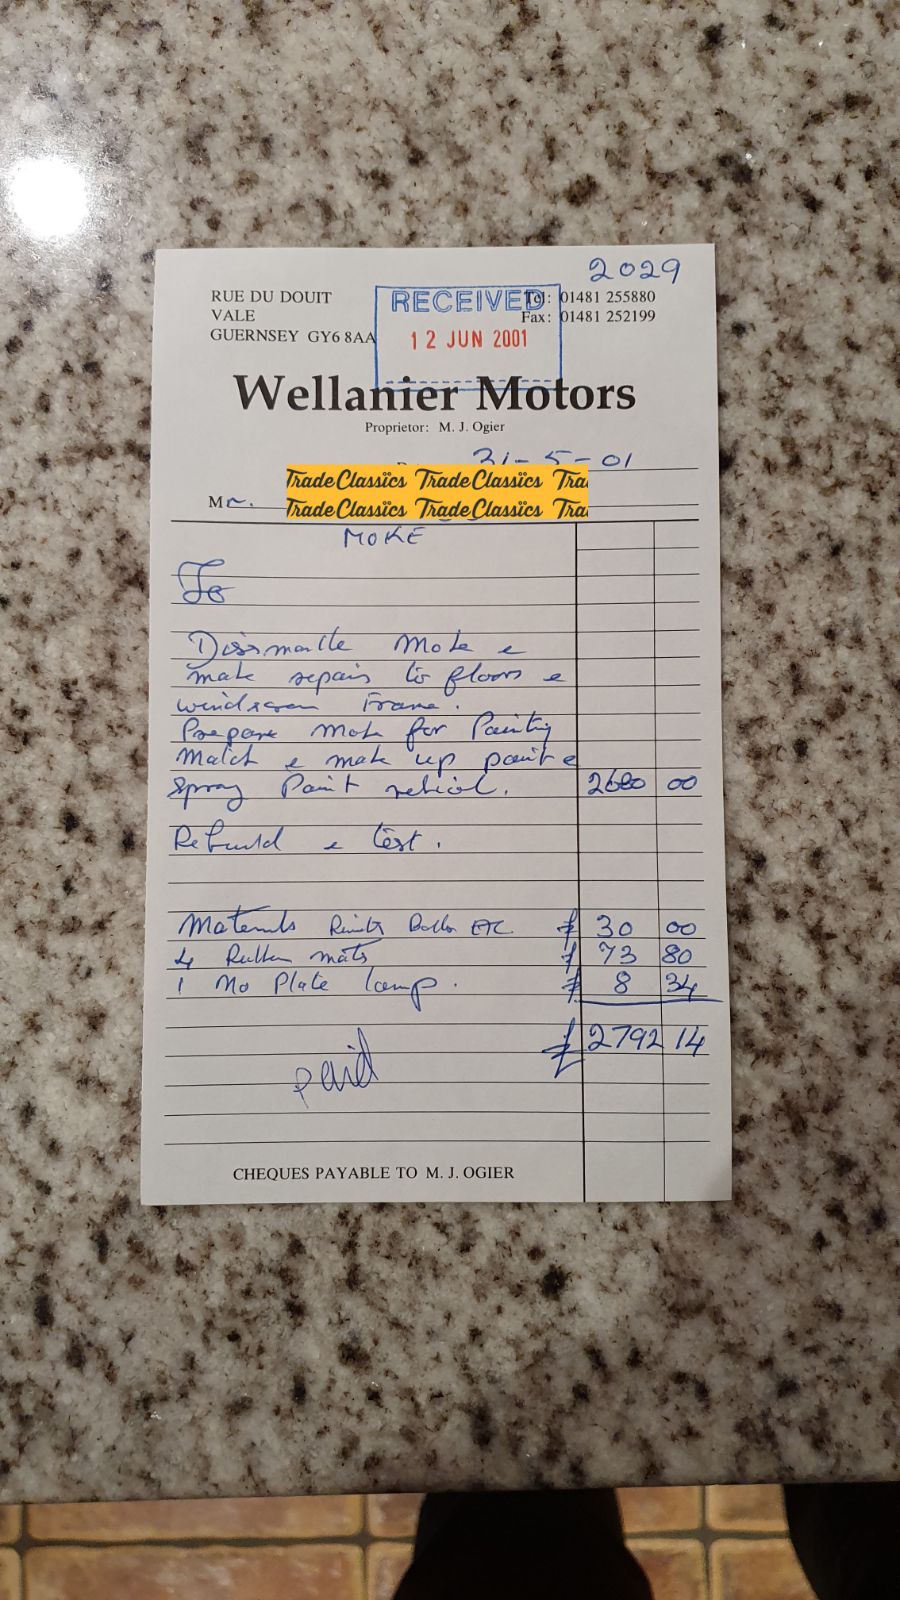 2029
RUE DU DOUIT
VALE
GUERNSEY GY6 8AA
RECEIVED
12 JUN 2001
Tel: 01481 255880
Fax: 01481 252199
Wellanier Motors
Proprietor: M. J. Ogier
31-5-01
Mr.
TradeClassics TradeClassics Tra
TradeClassics TradeClassics Tra
MOKE
To
Dissmantle Moke e
make repairs to floors e
windscreen Frame.
Prepare Moke for Painting
Match e make up paint e
Spray Paint vehicle. 2680 00
Rebuild e test.
Materials Rivits Bolts ETC. £ 30 00
4 Rubber mats £ 73 80
1 No Plate lamp. £ 8 34
£ 2792 14
paid
CHEQUES PAYABLE TO M. J. OGIER